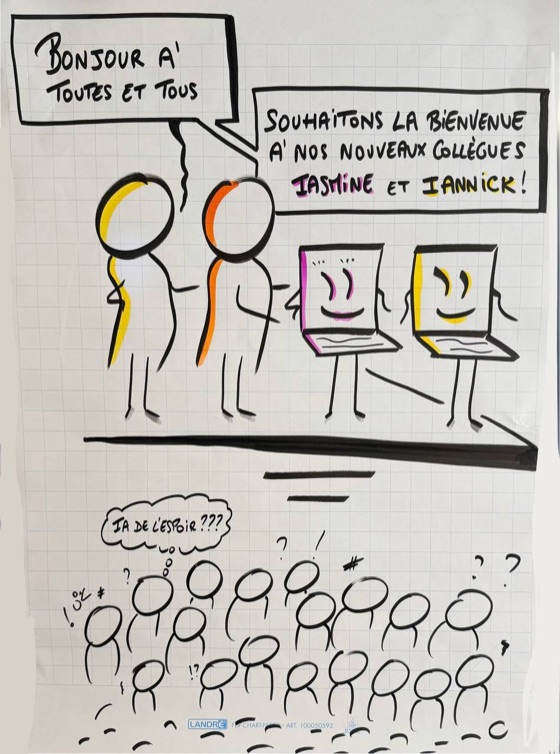 BONJOUR A'
TOUTES ET TOUS
SOUHAITONS LA BIENVENUE
A' NOS NOUVEAUX COLLÈGUES
IASMINE ET IANNICK !
IA DE L'ESPOIR ???
? ! #
? ?
?
! *
!?
LANDRÉ FLIPCHART-PAPIER • ART. 100050592